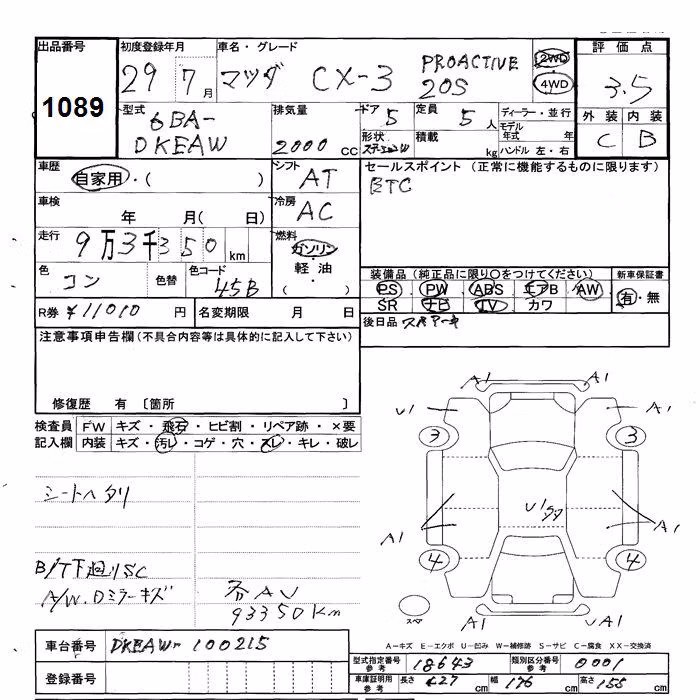 出品番号
1089
初度登録年月
29 7月
車名・グレード
マツダ CX-3 PROACTIVE 20S
2WD
4WD
評価点
3.5
外装 内装
C B
型式
6BA-DKEAW
排気量
2000cc
ドア 5
形状
定員 5人
積載 kg
ディーラー・並行
モデル年式 年
ハンドル 左・右
車歴
自家用・( )
シフト
AT
セールスポイント (正常に機能するものに限ります)
ETC
車検
年 月( 日)
冷房
AC
走行
9万3千350km
燃料
ガソリン
軽油
( )
色
コン
色替
色コード
45B
装備品(純正品に限り○をつけてください)
PS PW ABS エアB AW
SR ナビ TV カワ
新車保証書
有・無
R券 ¥11010円
名変期限 月 日
後日品 スペアキー
注意事項申告欄(不具合内容等は具体的に記入して下さい)
修復歴 有 〔箇所 〕
検査員記入欄
FW キズ・飛石・ヒビ割・リペア跡・×要
内装 キズ・汚レ・コゲ・穴・スレ・キレ・破レ
シートヘタリ
B/T下廻りSC
A/W.Dミラーキズ
93350km
A1 A1
U1 A1
3 3
U1
A1 A1
4 4
スペア
A1 UA1
A－キズ E－エクボ U－凹み W－補修跡 S－サビ C－腐食 XX－交換済
車台番号
DKEAW-100215
登録番号
型式指定番号 参考 18643
類別区分番号 参考 0001
車庫証明用 参考 長さ 427cm 幅 176cm 高さ 155cm